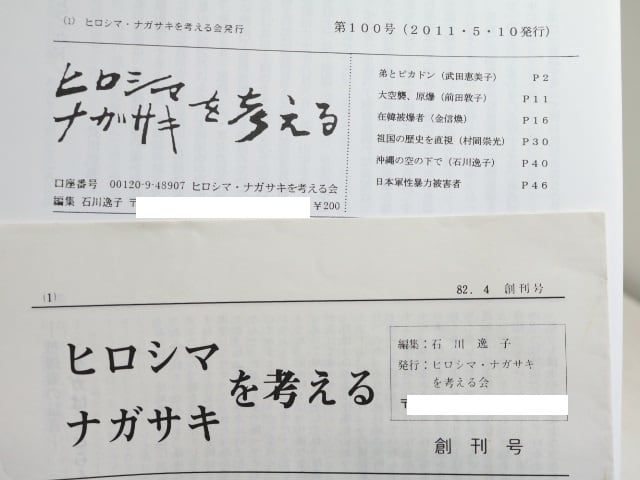 (1) ヒロシマ・ナガサキを考える会発行
第100号(2011・5・10発行)
ヒロシマ
ナガサキ
を考える
弟とピカドン(武田恵美子) P2
大空襲、原爆(前田敦子) P11
在韓被爆者(金信煥) P16
祖国の歴史を直視(村岡崇光) P30
沖縄の空の下で(石川逸子) P40
日本軍性暴力被害者 P46
口座番号 00120-9-48907 ヒロシマ・ナガサキを考える会
編集 石川逸子 〒
¥200
(1)
82.4 創刊号
ヒロシマ
ナガサキ
を考える
編集:石川逸子
発行:ヒロシマ・ナガサキ
を考える会
〒
創刊号